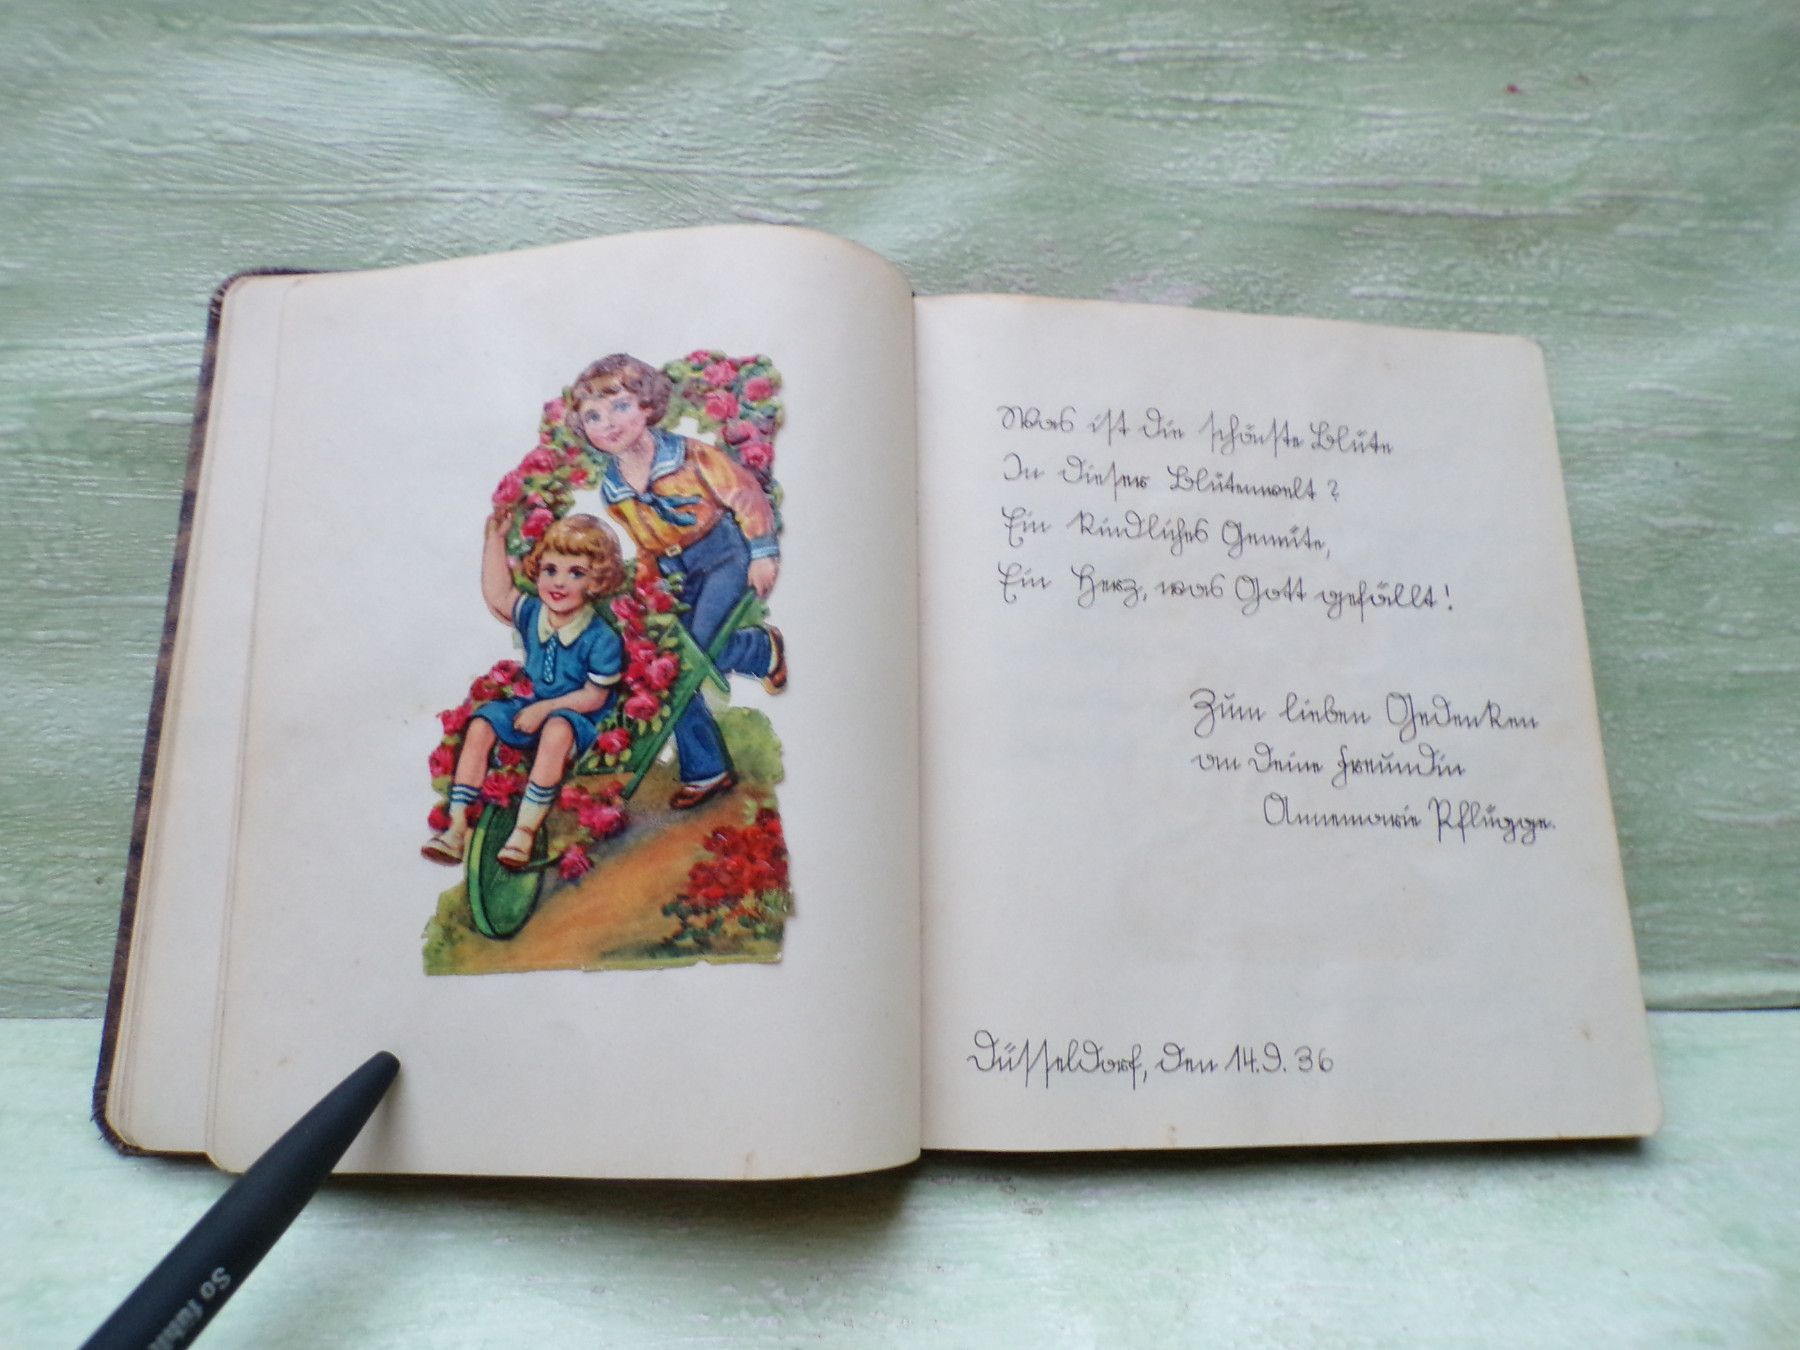 Was ist die schönste Blüte
In dieser Blütenwelt?
Ein kindliches Gemüte,
Ein Herz, was Gott gefällt!
Zum lieben Gedenken
an Deine Freundin
Annemarie Pflügge.
Düsseldorf, den 14.9.36
So